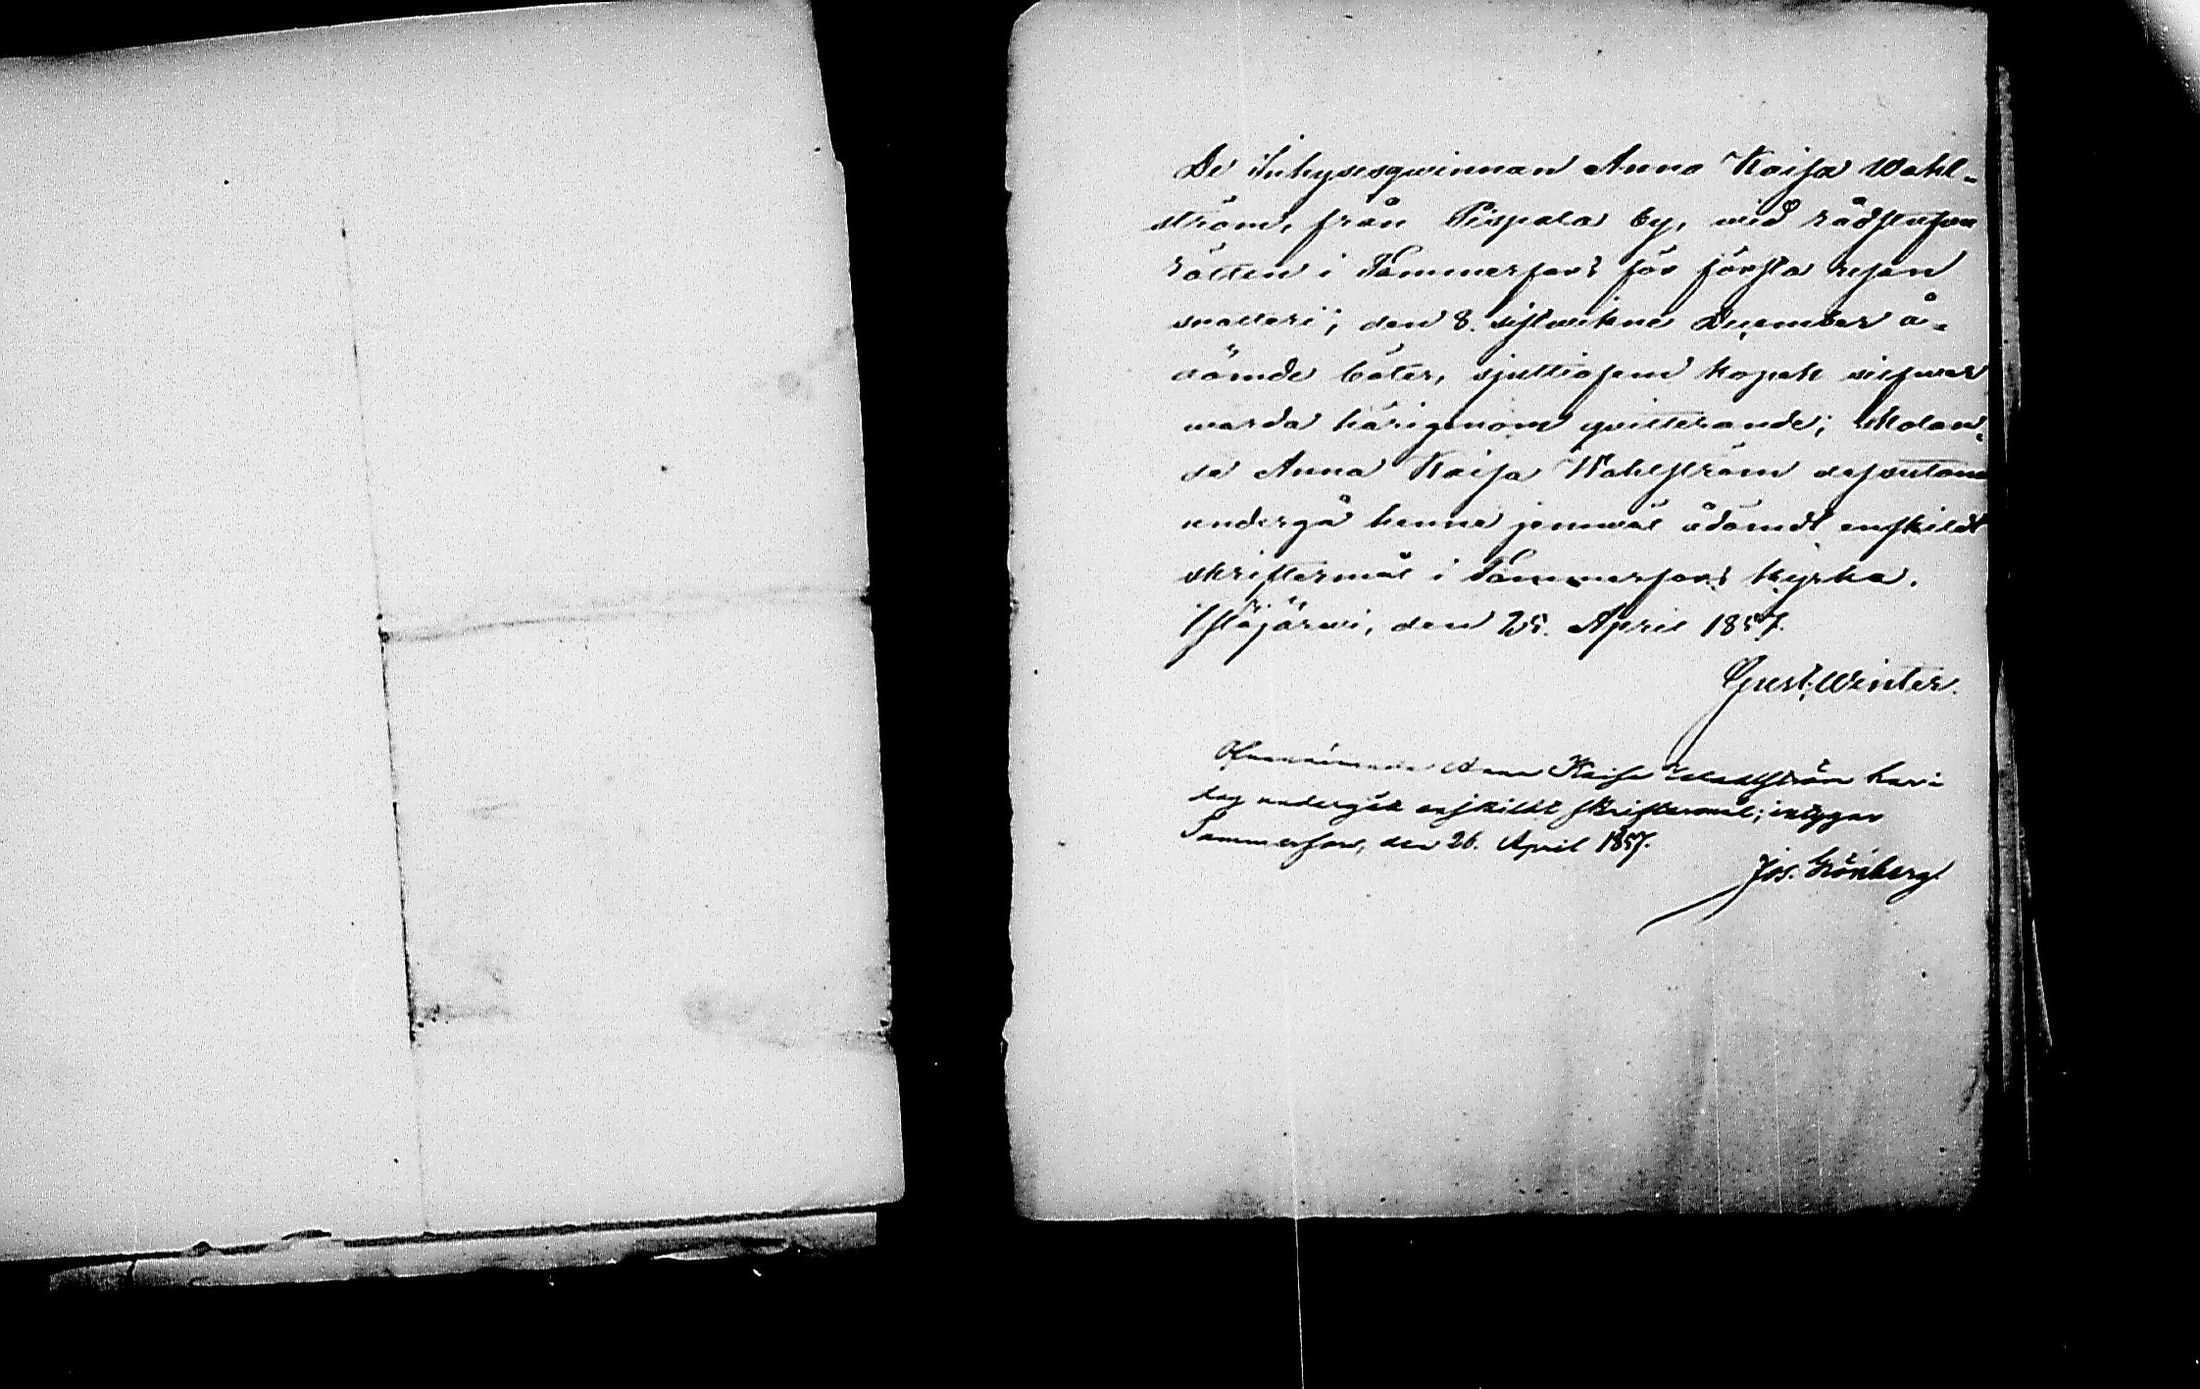 De Inhysesqwinnan Anna Kaisa Wahl-
ström, från Pispala by, wid rådstufvu
rätten i Tammerfors för första resan
snatteri, den 8. sistwikne December å-
dömde böter, sjuttiofem kopek silfwer
warda härigenom qvitterande; skolan-
de Anna Kaisa Wahlström dessutom
undergå henne jemwäl ådömdt enskildt
skriftermål i Tammerfors kyrka.
Ylöjärwi, den 25. April 1857.
Gust. Winter.
Ofvannämnda Anna Kaisa Wahlström har i
dag undergått enskildt skriftermål; intygar
Tammerfors, den 26. April 1857.
Jos. Grönberg.